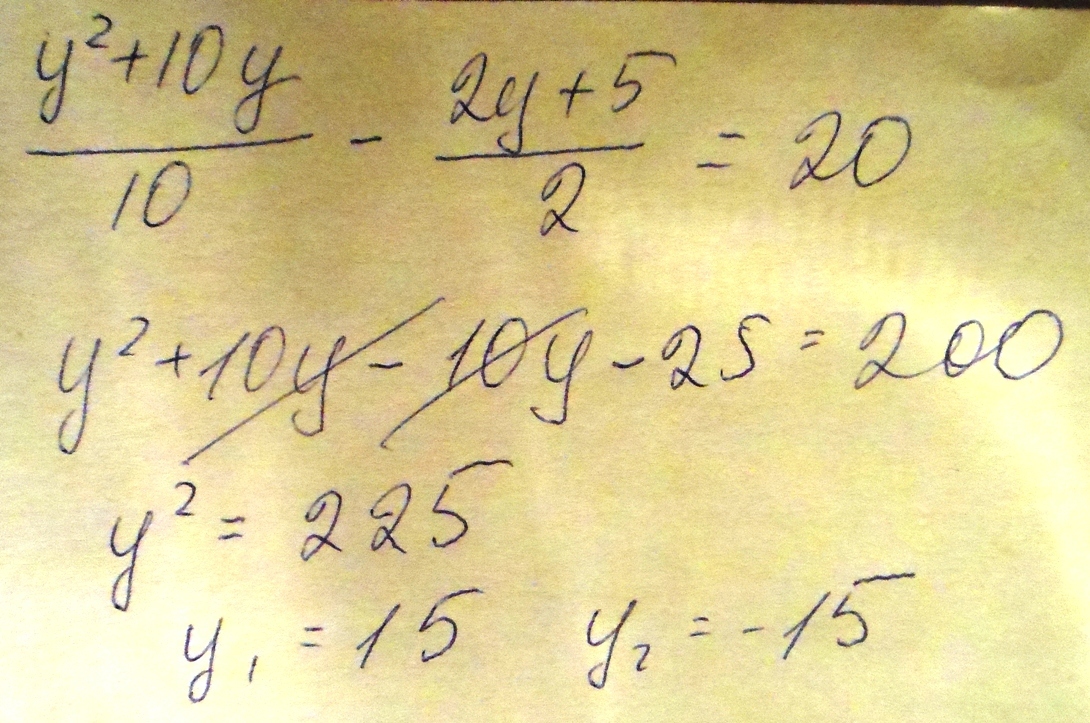 (y²+10y)/10 - (2y+5)/2 = 20
y²+10y-10y-25=200
y²=225
y₁=15 y₂=-15